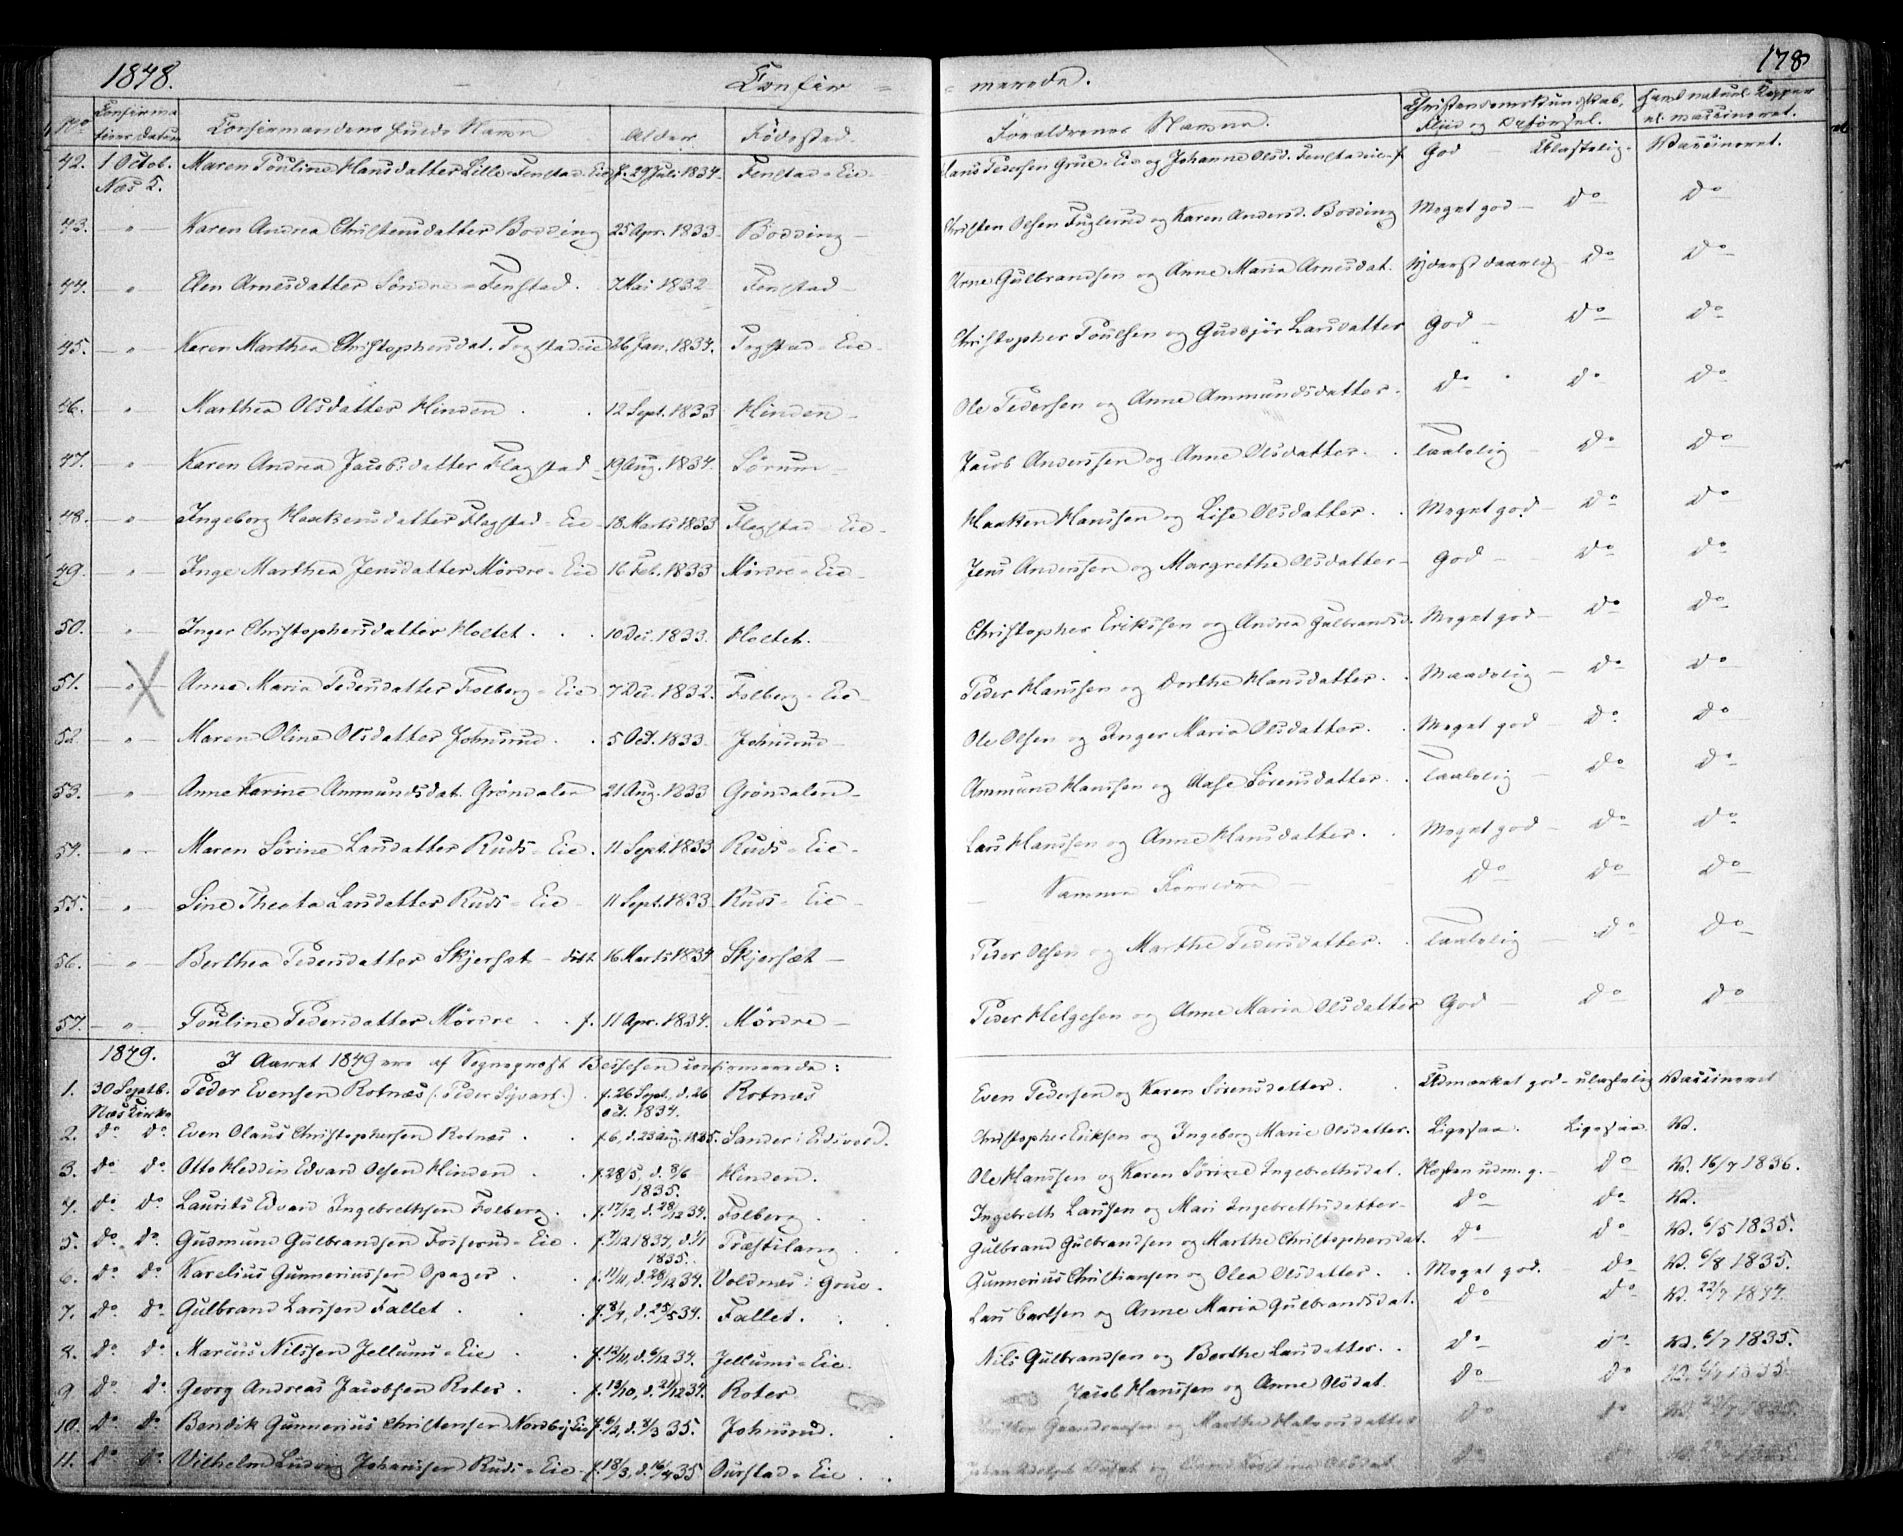 1848. Confir= =merede. 178
No Confirma tions Datum Confirmandens fulde Navn Alder Fødested. Forældrenes Navne. Christendomskundskab, Fliid og Opførsel. Havd naturl. Kopper el. vaccineret.
42. 1 Octob. Næs K. Maren Pouline Hansdatter Lille=Fenstad=Eie f. 29 Juli 1834. Fenstad=Eie. Hans Pedersen Grue=Eie og Johanne Olsd. Fenstadeie. God — Ulastelig. Vaccineret.
43. " Karen Andrea Christensdatter Bodding 25 Apr. 1833. Bodding — Christen Olsen Fuglerud og Karen Andersd. Bodding Meget god — Do Do
44. " Elen Arnesdatter Søndre=Fenstad. 7 Mai 1832 Fenstad — Arne Gulbrandsen og Anne Maria Arnesdat. Yderst daarlig — Do Do
45. " Karen Marthea Christophersdat. Fogstadeie 26 Jan. 1834. Fogstad=Eie. Christopher Poulsen og Gudbjør Larsdatter God — Do Do
46. " Marthea Olsdatter Hinden . . 12 Sept. 1833 Hinden — Ole Pedersen og Anne Ammundsdatter. Do Do Do
47. " Karen Andrea Jacobsdatter Flagstad 19 Aug. 1834. Sørum — Jacob Anderssen og Anne Olsdatter. Taalelig — Do Do
48. " Ingeborg Haakensdatter Flagstad=Eie 18 Marts 1833 Flagstad=Eie. Haaken Hanssen og Lise Olsdatter. Meget god — Do Do
49. " Inge Marthea Jensdatter Mørdre=Eie 16 Feb. 1833 Mørdre=Eie. Jens Anderssen og Margrethe Olsdatter — God — Do Do
50. " Inger Christophersdatter Holtet . . . 10 Dec. 1833. Holtet. Christopher Erikssen og Andrea Gulbrandsd. Meget god — Do Do
51. " Anne Maria Pedersdatter Folberg=Eie 7 Dec. 1832. Folberg=Eie — Peder Hanssen og Dorthe Hansdatter. Maadelig — Do Do
52. " Maren Oline Olsdatter Johnsrud . . 5 Oct. 1833. Johnsrud — Ole Olsen og Inger Maria Olsdatter. Meget god Do Do
53. " Anne Karine Ammundsdat. Grøndalen 21 Aug. 1833 Grøndalen — Ammund Hanssen og Aase Sørensdatter. Taalelig — Do Do
54. " Maren Sørine Larsdatter Ruds=Eie. 11 Sept. 1833 Ruds=Eie — Lars Hanssen og Anne Hansdatter. Meget god — Do Do
55. " Sine Theata Larsdatter Ruds=Eie 11 Sept. 1833 Ruds=Eie — Samme Forældre — Do Do Do
56. " Berthea Pedersdatter Skjersæt — 16 Marts 1834 Skjersæt — Peder Olsen og Marthe Pedersdatter. Taalelig — Do Do
57. " Pouline Pedersdatter Mørdre . . f. 11 Apr. 1834. Mørdre — Peder Helgesen og Anne Maria Olsdatter God — Do Do
1849. I Aaret 1849 ere af Sognepræst Bessesen confirmerede:
1. 30 Septb. Næs Kirke Peder Evensen Rotnæs (: Peder Syvert :) . f. 26 Sept., d. 26 oct. 1834. Rotnæs Even Pedersen og Karen Sørensdatter. Udmærket god — ulastelig Vaccineret
2. Do Do Even Olaus Christophersen Rotnæs . . f. 6, d. 23 Aug. 1835. Sander i Eidsvold. Christopher Eriksen og Ingeborg Marie Olsdatter. Ligesaa. Ligesaa V.
3. Do Do Otto Heddin Edvard Olsen Hinden . . f. 28/5, d. 8/6 1835. Hinden. Ole Hanssen og Karen Sørine Ingebrethsdat. Næsten udm. g. Do V. 16/7 1836.
4. Do Do Laurits Edvard Ingebrethsen Folberg . f. 17/12, d. 28/12 34. Folberg . Ingebreth Larssen og Mari Ingebrethsdatter Do Do V.
5. Do Do Gudmund Gulbrandsen Fosserud=Eie . f. 7/12 1834, d. 1/1 1835. Præstilang Gulbrand Gulbrandsen og Marthe Christophersdat. Do Do V. 6/5 1835.
6. Do Do Karelius Gunneriussen Opager . . f. 11/11, d. 26/12 34. Voldnæs i Grue. Gunnerius Christiansen og Olea Olsdatter . Meget god. Do V. 6/8 1835.
7. Do Do Gulbrand Larssen Fallet . . f. 8/4, d. 25/5 34. Fallet. Lars Carlsen og Anne Maria Gulbrandsdat. Do Do V. 22/7 1844.
8. Do Do Marcus Nilssen Jellums=Eie . f. 12/11, d. 6/12 34. Jellums=Eie. Nils Gulbrandsen og Berthe Larsdatter. Do Do V. 6/7 1835.
9 Do Do Georg Andreas Jacobsen Roter . . f. 13/10, d. 21/12 34. Roter. Jacob Hanssen og Anne Olsdat. Do Do V. 6/7 1835
10. Do Do Bendik Gunnerius Christensen Nordby Eie f. 6/2, d. 8/3 35. Johnsrud. og Marthe Halvorsdatter Do Do V. 1835.
11. Do Do Vilhelm Ludvig Johanssen Ruds=Eie. f. 18/3, d. 16/4 35 Ourstad=Eie . Johan Adolph og Olsdat. Do Do V. 1835.